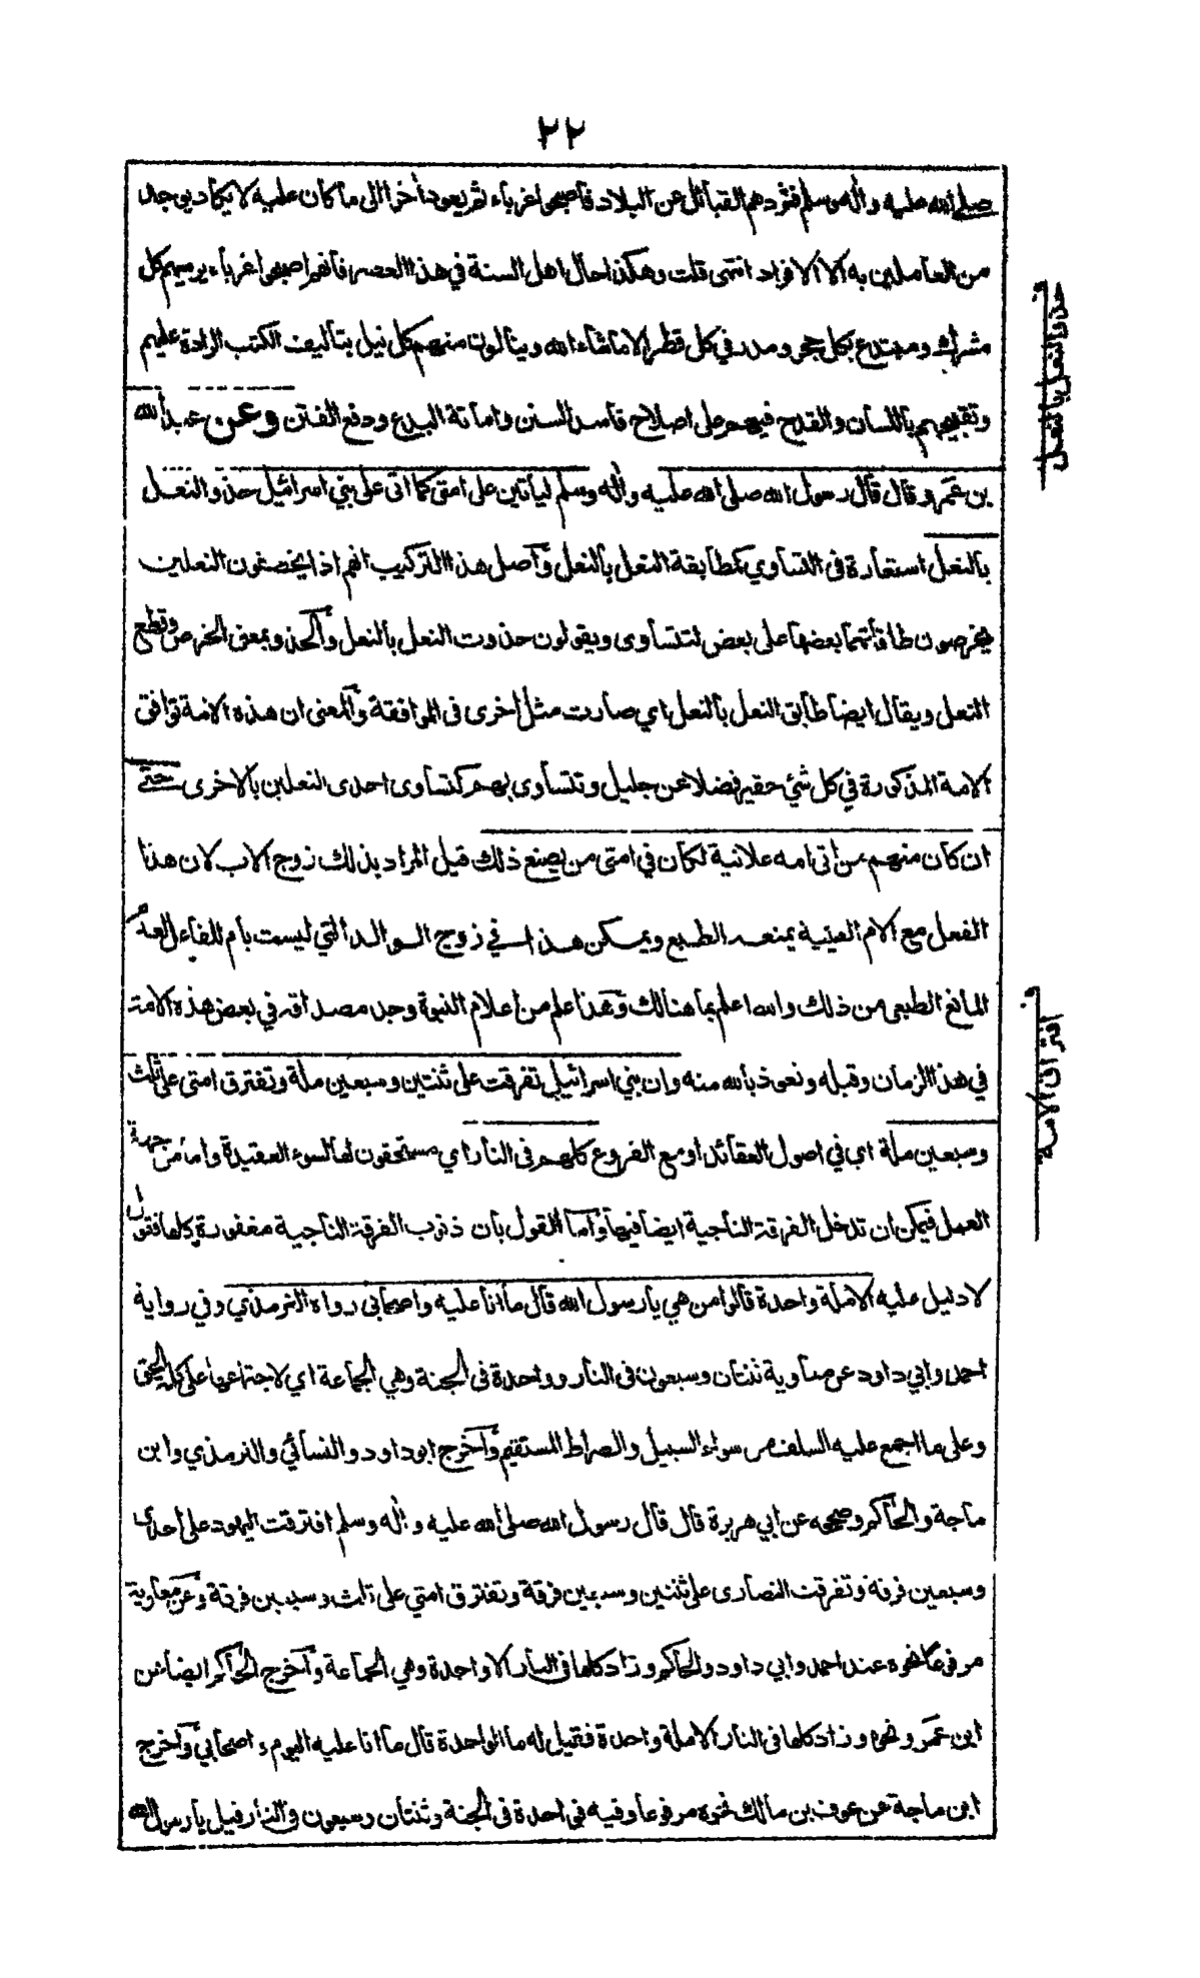 ٢٢
صلى الله عليه وآله وسلم فشردهم القبائل عن البلاد فأصبحوا غرباء ثم يعود آخرا الى ما كان عليه لا يكاد يوجد
من العاملين به الا الافراد انتهى قلت وهكذا حال اهل السنة في هذا العصر فانهم اصبحوا غرباء يرميهم كل
مشرك ومبتدع بكل حجر ومدر في كل قطر الا ما شاء الله وينالون منهم كل نيل بتأليف الكتب الرادة عليهم
وتقبيحهم باللسان والقدح فيهم على اصلاح فاسد السنن واماتة البدع ودفع الفتن وعن عبد الله
بن عمرو قال قال رسول الله صلى الله عليه وآله وسلم ليأتين على امتى كما اتى على بني اسرائيل حذو النعل
بالنعل استعارة فى التساوي كمطابقة النعل بالنعل وأصل هذا التركيب انهم اذا يخصفون النعلين
يخرصون طاقاتهما بعضها على بعض لتتساوى ويقولون حذوت النعل بالنعل والحذو بمعنى الخرص وقطع
النعل ويقال ايضا طابق النعل بالنعل اي صارت مثل اخرى فى الموافقة والمعنى ان هذه الامة توافق
الامة المذكورة في كل شئ حقير فضلا عن جليل وتتساوى بهم كتساوى احدى النعلين بالاخرى حتى
ان كان منهم من اتى امه علانية لكان في امتى من يصنع ذلك قيل المراد بذلك زوج الاب لان هذا
الفعل مع الام العينية يمنعه الطبع ويمكن هذا في زوج الوالد التي ليست بأم للفاعل لعدم
المانع الطبعى من ذلك والله اعلم بما هنالك وهذا علم من اعلام النبوة وجد مصداقه في بعض هذه الامة
في هذا الزمان وقبله ونعوذ بالله منه وان بني اسرائيل تفرقت على ثنتين وسبعين ملة وتفترق امتى على ثلث
وسبعين ملة اي في اصول العقائد او مع الفروع كلهم فى النار اي مستحقون لها لسوء العقيدة واما من جهة
العمل فيمكن ان تدخل الفرقة الناجية ايضا فيها وأما القول بان ذنوب الفرقة الناجية مغفورة كلها فقول
لا دليل عليه الا ملة واحدة قالوا من هي يا رسول الله قال ما انا عليه واصحابى رواه الترمذي وفي رواية
احمد وابي داود عن معاوية ثنتان وسبعون فى النار وواحدة فى الجنة وهي الجماعة اي لاجتماعها على كلمة الحق
وعلى ما اجمع عليه السلف من سواء السبيل والصراط المستقيم وأخرج ابو داود والنسائي والترمذي وابن
ماجة والحاكم وصححه عن ابي هريرة قال قال رسول الله صلى الله عليه وآله وسلم افترقت اليهود على احدى
وسبعين فرقة وتفرقت النصارى على ثنتين وسبعين فرقة وتفترق امتي على ثلث وسبعين فرقة وعن معاوية
مرفوعا نحوه عند احمد وابي داود والحاكم وزاد كلها فى النار الا واحدة وهي الجماعة وأخرج الحاكم ايضا عن
ابن عمرو نحوه وزاد كلها فى النار الا ملة واحدة فقيل له ما الواحدة قال ما انا عليه اليوم واصحابي وأخرج
ابن ماجة عن عوف بن مالك نحوه مرفوعا وفيه فواحدة فى الجنة وثنتان وسبعون في النار قيل يا رسول الله
حذو النعل بالنعل
افتراق الامة